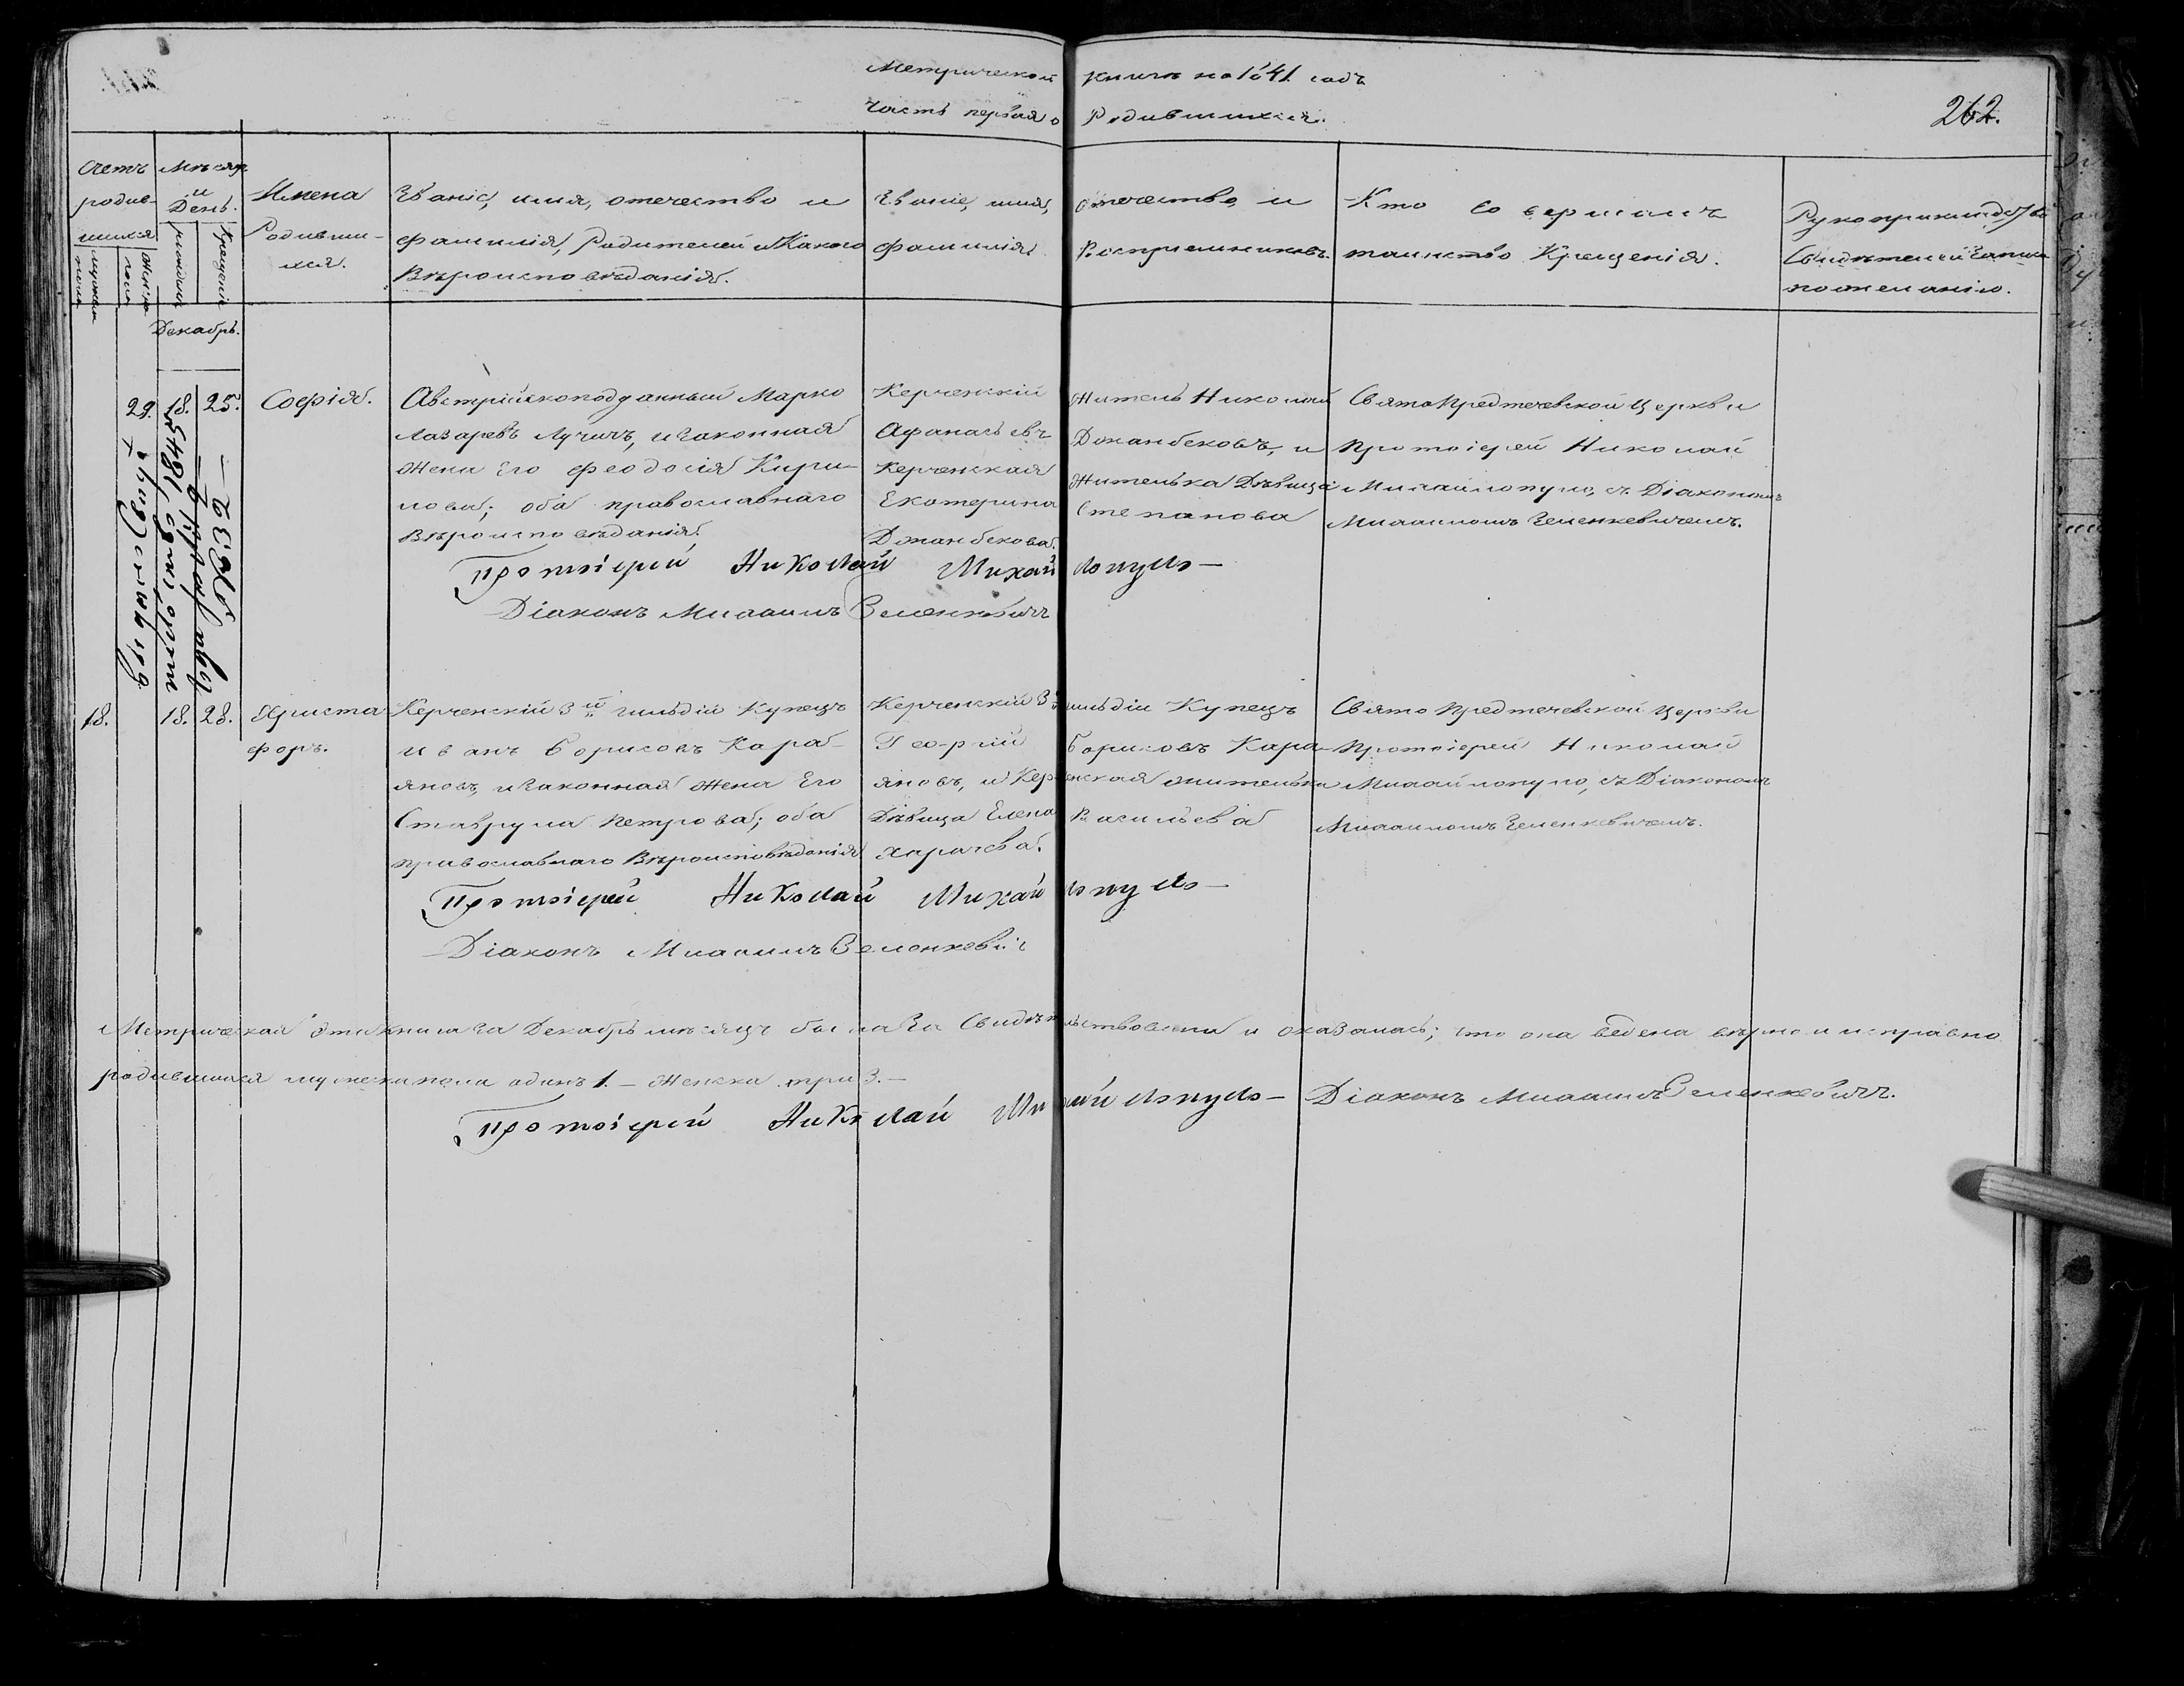 Метрической книги на 1841 годъ
Часть первая о Родившихся.
262.
Счетъ родив-шихся
мужеска пола
женска пола
Мѣсяцъ и День.
рожденія
Крещенія
Имена Родивши-хся.
Званіе, имя, отечество и фамилія, Родителей и Какого Вѣроисповѣданія.
Званіе, имя, отечество и фамилія Воспріемниковъ.
Кто совершалъ таинство Крещенія.
Рукоприкладство Свидѣтелей записи по желанію.
Декабрь.
29. 18. 25. Софія.
Австрійскоподданный Марко
Лазаревъ Лучичъ, и законная
жена Его Феодосія Кири-
лова; оба православнаго
Вѣроисповѣданія.
Керченскій житель Николай
Афанасьевъ Джанбековъ, и
Керченская жителька Дѣвица
Екатерина Степанова
Джанбекова.
Свято Предтечевской Церкви
Протоіерей Николай
Михайлопуло, съ Діакономъ
Михаиломъ Зеленкевичемъ.
Протоіерей Николай Михайлопуло
Діаконъ Михаилъ Зеленкевичъ
18. 18. 28. Христо
форъ.
Керченскій 3й гильдіи Купецъ
Иванъ Борисовъ Кара-
яновъ, и законная жена Его
Ставрула Петрова; оба
православнаго Вѣроисповѣданія
Керченскій 3й гильдіи Купецъ
Георгій Борисовъ Кара-
яновъ, и Керченская жителька
Дѣвица Елена Васильева
Свято Предтечевской Церкви
Протоіерей Николай
Михайлопуло, съ Діакономъ
Михаиломъ Зеленкевичемъ.
Протоіерей Николай Михайлопуло
Діаконъ Михаилъ Зеленкевичъ
Метрическая эта книга за Декабрь мѣсяцъ была за Свидѣтельствована и оказалась; что она ведена вѣрно и исправно
родившихся мужеска пола одинъ 1. — женска три 3. —
Протоіерей Николай Михайлопуло — Діаконъ Михаилъ Зеленкевичъ.